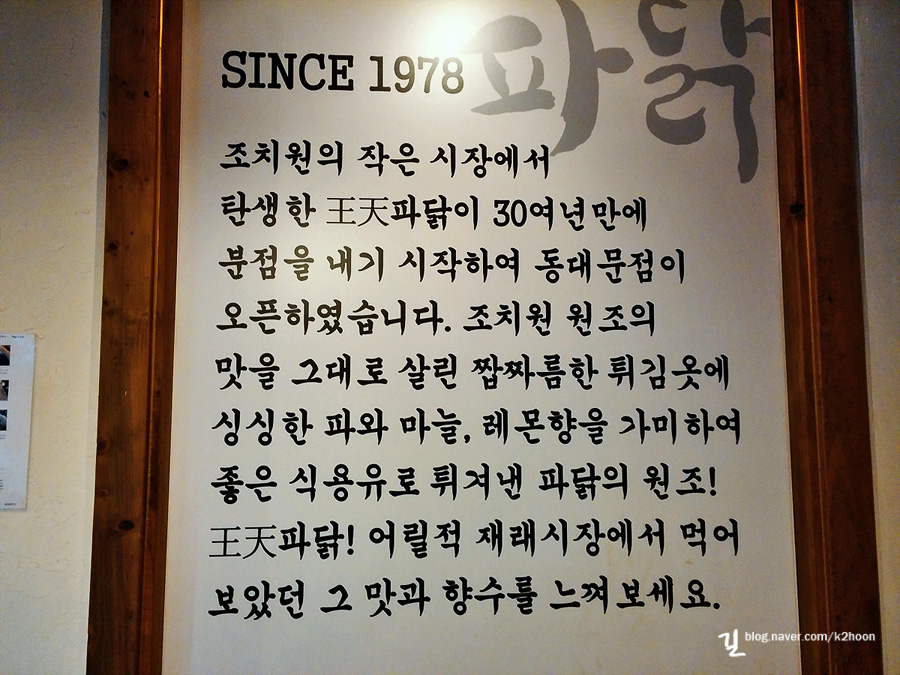 파닭
SINCE 1978
조치원의 작은 시장에서
탄생한 王天파닭이 30여년만에
분점을 내기 시작하여 동대문점이
오픈하였습니다. 조치원 원조의
맛을 그대로 살린 짭짜름한 튀김옷에
싱싱한 파와 마늘, 레몬향을 가미하여
좋은 식용유로 튀겨낸 파닭의 원조!
王天파닭! 어릴적 재래시장에서 먹어
보았던 그 맛과 향수를 느껴보세요.
길 blog.naver.com/k2hoon